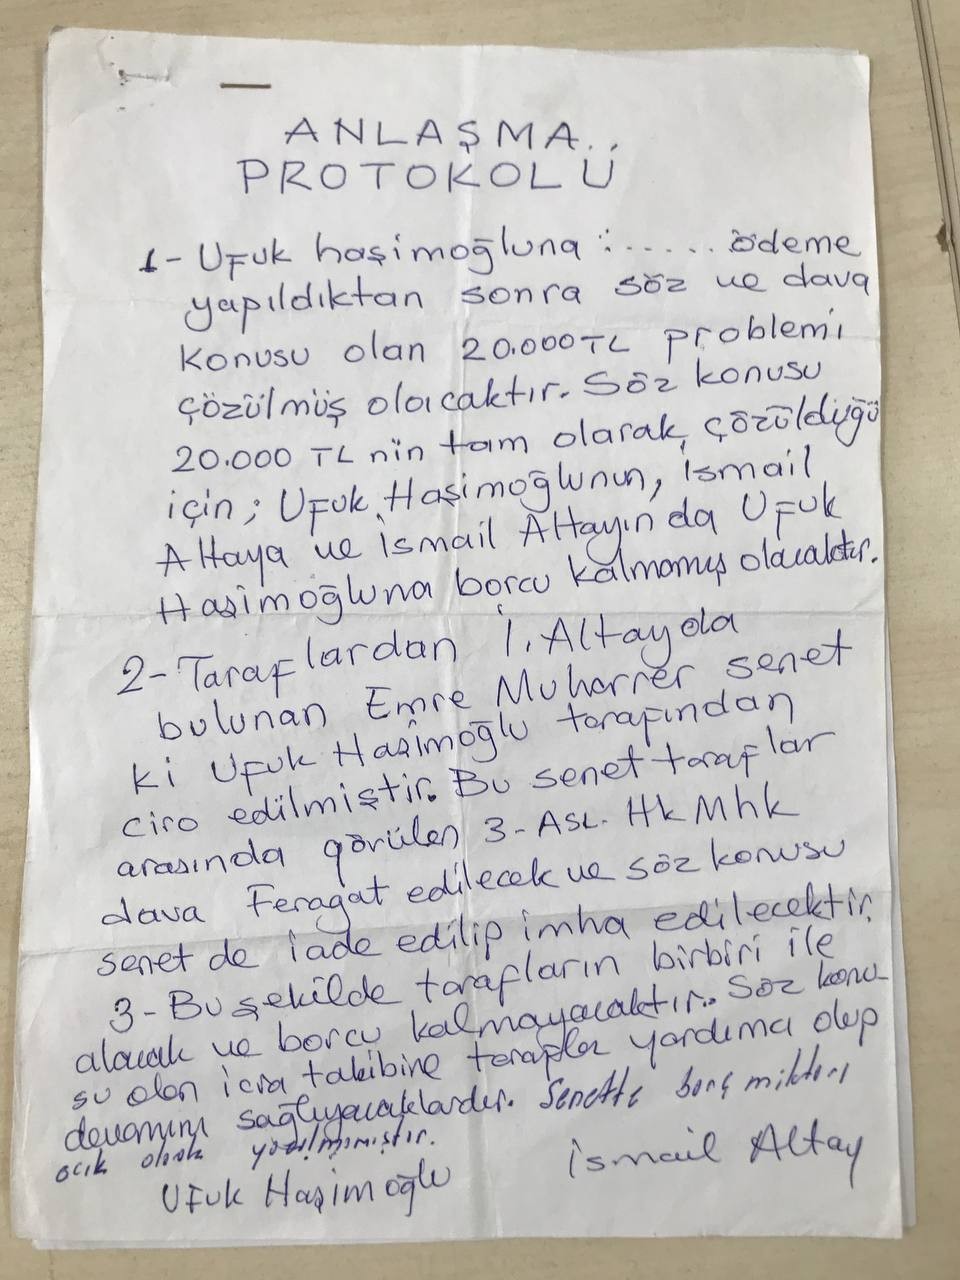 ANLAŞMA
PROTOKOLÜ
1- Ufuk haşimoğluna :..... ödeme
yapıldıktan sonra söz ve dava
konusu olan 20.000 TL problemi
çözülmüş olacaktır. Söz konusu
20.000 TL nin tam olarak çözüldüğü
için; Ufuk Haşimoğlunun, İsmail
Altaya ve İsmail Altayında Ufuk
Haşimoğluna borcu kalmamış olacaktır.
2- Taraflardan İ. Altayda
bulunan Emre Muharrer senet
ki Ufuk Haşimoğlu tarafından
ciro edilmiştir. Bu senet taraflar
arasında görülen 3- Asl. Hk Mhk
dava Feragat edilecek ve söz konusu
senet de iade edilip imha edilecektir.
3- Bu şekilde tarafların birbiri ile
alacak ve borcu kalmayacaktır.. Söz konu-
su olan icra takibine taraflar yardımcı olup
devamını sağlıyacaklardır. Senette borç miktarı
açık olarak yazılmamıştır.
Ufuk Haşimoğlu İsmail Altay